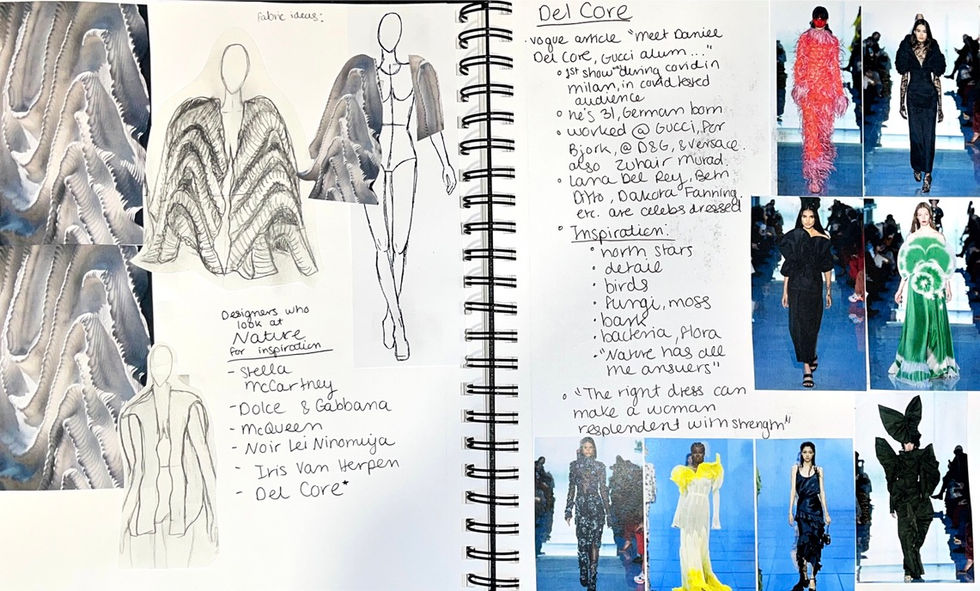 Fabric ideas:
Designers who
look at
Nature
for inspiration
- Stella
McCartney
- Dolce & Gabbana
- McQueen
- Noir Lei Ninomiya
- Iris Van Herpen
- Del Core*
Del Core
· vogue article "meet Daniel
Del Core, Gucci alum..."
° 1st show during covid in
milan, in covid tested
audience
° he's 31, German born
° worked @ Gucci, For
Bjork, @ D&G, & versace.
also Zuhair Murad.
° Lana Del Rey, Beth
Ditto, Dakota Fanning,
etc. are celebs dressed
° Inspiration:
· north stars
· detail
· birds
· fungi, moss
· bark
· bacteria, flora
· "Nature has all
the answers"
° "The right dress can
make a woman
resplendent with strength"